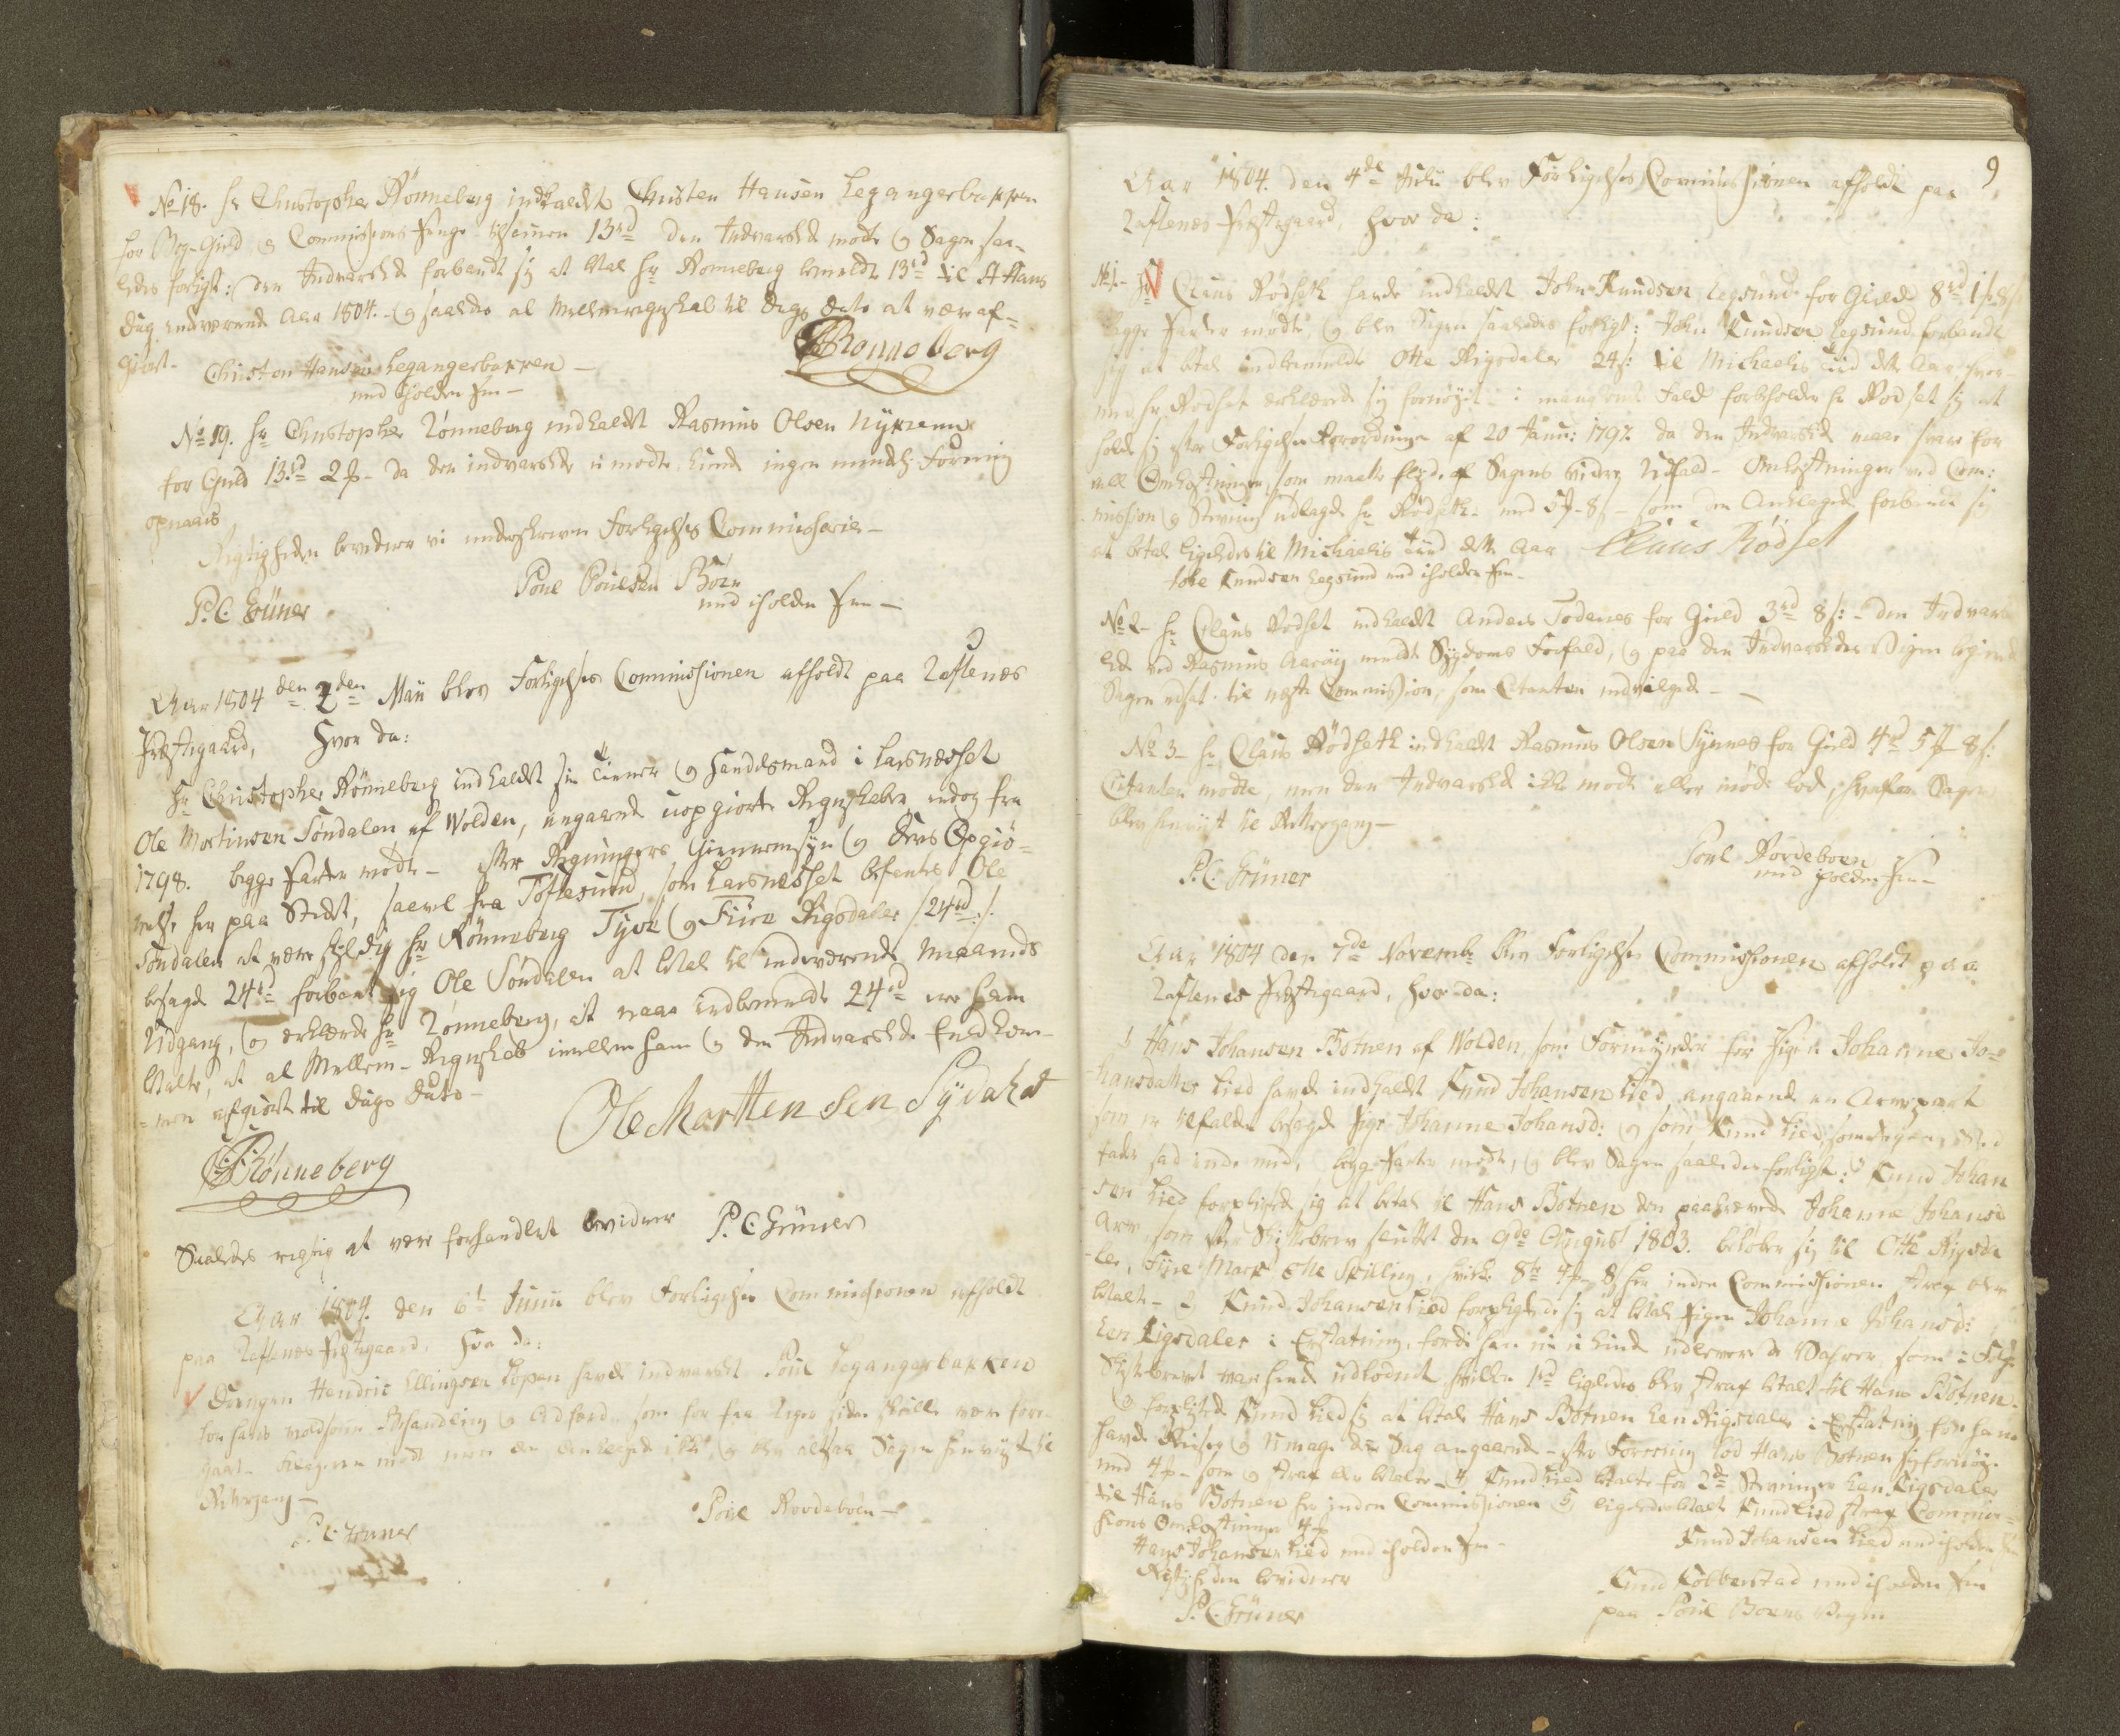 No 18. Hr Christopher Rönneberg indkaldt Christen Hansen Legangerbakken
for Bog-Gield og Commissions Penge tilsammen 13rd den Indvarslede mødte og Sagen saa-
ledes forligt: den Indvarslede forbandt sig at betale Hr Rønneberg bemeldte 13rd til St Hans
dag indeværende Aar 1804. og saaledes al Mellemregnskab til Dags Dato at være af-
giort.
Christen Hansen Legangerbakken
med iholden Pen
CRønneberg
No 19. Hr Christopher Rönneberg indkaldt Rasmus Olsen Nykrem
for Gield 13rd 2 da den indvarslede ei mødte kunde ingen mindelig Forening
opnaaes
Rigtigheden bevidner vi underskrevne Forligelses Commissarier
P. C. Grüner
Poul Poulsen Boen
med iholden Pen
Aar 1804 den 2den Maii blev Forligelses Commissionen afholdt paa Zaflenes
Præstegaard, hvor da:
Hr Christopher Rönneberg indkaldt sin Tiener og Handelsmand i Larsnesset
Ole Mortinsen Söndalen af Wolden, angaaende uopgiorte Regnskaber endog fra
1798. begge Parter mødte efter Regningers Giennemsyn og dens Opgiö-
relse her paa Stedet, saavel fra Toftesund, som Larsnesset befantes Ole
Söndalen at være skyldig Hr Rönneberg Tyve og Fiire Rigsdaler /24rd/.
besagde 24rd forbant sig Ole Söndalen at betale til indeværende Maaneds
Udgang, og erklærede Hr Rönneberg, at naar indbemeldte 24rd ere ham
betalte, at al Mellem-Regnskab imellem ham og den Indvarslede fuldkom-
men afgiort til Dags Dato
Ole Martten sen Sydahet
CRønneberg
Saaledes rigtig at være forhandlet bevidner P. C. Grüner
Aar 1804. den 6te Junii blev Forligelses Commissionen afholdt
paa Zaflenes Præstegaard, hvor da:
Drengen Hendric Ellingsen havde indvarslet Poul Legangerbakken
for hans voldsom Behandling og Adfærd, som for faa Uger siden skulle være fore-
gaaet. Klageren mødte men den Anklagede ikke og blev altsaa Sagen henviist til
Rettergang
P. C. Grüner
Poul Rovdeboen
9
Aar 1804. den 4de Julii blev Forligelses Commissionen afholdt paa
Zaflenes Præstegaard, hvor da:
No 1. Hr Claus Rödseth havde indkaldt John Knudsen Legsund for Gield 8rd 1 8
begge Parter mødte, og blev Sagen saaledes forligt: John Knudsen Legsund forbandt
sig at betale indbemeldte Otte Rigsdaler 24 til Michaelis Tiid dette Aar, hvor-
med Hr Rödset erklærede sig fornøyet i manglende Fald forbeholder Hr Rødset sig at
holde sig efter Forligelses Forordningen af 20 Janu: 1797. da den Indvarslede maae svare for
all Omkostninger, som maatte flyde af Sagens videre Udfald. Omkostninger ved Com-
mission og Stevning udlagde Hr Rödseth med 5 8 som den Anklagede forbandt sig
at betale ligeledes til Michaelis Tiid dette Aar
Claus Rödset
John Knudsen Legsund med iholden Pen
No 2. Hr Claus Rödset indkaldt Anders Todenes for Gield 3rd 8 den Indvars-
lede ved Rasmus Aarøy meldte Sygdoms Forfald, og paa den Indvarsledes Vegne begierede
Sagen udsat til næste Commission, som Citanten indvilgede
No 3. Hr Claus Rödseth indkaldt Rasmus Olsen Synnes for Gield 4rd 5 8
Citanten mødte, men den Indvarslede ikke mødte eller møde lod, hvorfor Sagen
blev henviist til Rettergang
P. C. Grüner
Poul Rovdeboen
med iholden Pen
Aar 1804 den 7de Novembr blev Forligelses Commissionen afholdt paa
Zaflenes Præstegaard, hvor da:
1 Hans Johansen Botnen af Wolden, som Formynder for Pigen Johanne Jo-
hansdatter Lied havde indkaldt Knud Johansen Lied angaaende en Arvepart
som er tilfalden besagde Pige Johanne Johansd: og som Knud Lied, som
sad inde med, begge Parter mødte, og blev Sagen saaledes forligt: Knud Johan-
sen Lied forpligtede sig at betale til Hans Botnen den paakrævede Johanne Johansd
Arv, som efter Skiftebrev sluttet den 9de August 1803. beløber sig til Otte Rigsda-
ler, Fiire Mark otte Skilling, hvilke 8rd 4 8 her inden Commissionen strax blev
betalt. 2 Knud Johansen Lied forpligtede sig at betale Pigen Johanne Johansd:
Een Rigsdaler i Erstatning, fordi han ei kunde udlevere de Vahrer, som i Følge
Skiftebrevet var hende udlodnet hvilke 1rd ligeledes blev strax betalt til Hans Botnen.
3 forpligtede Knud Lied sig at betale Hans Botnen Een Rigsdaler i Erstatning for hans
havde Reiser og Umage den Sag angaaende. efter Forening lod Hans Botnen sig fornøie
med 4 som og strax blev betalte. 4 Knud Lied betalte for 2de Stevninger Een Rigsdaler
til Hans Botnen her inden Commissionen 5 ligeledes betalt Knud Lied strax Commis-
sions Omkostninger 4
Hans Johansen Lied med iholden Pen
Knud Johansen Lied med iholden Pen
Rigtigheden bevidner
P. C. Grüner
Knud Kobberstad med iholden Pen
paa Poul Boens Vegne